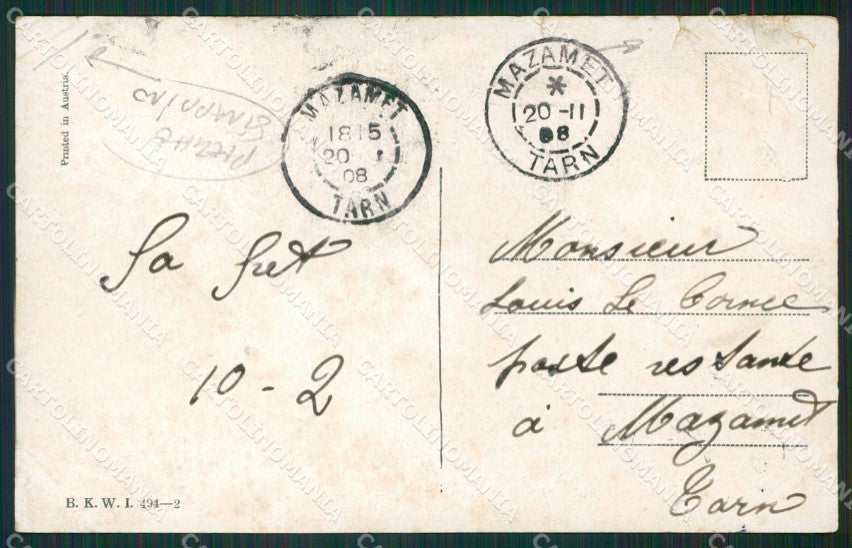 Printed in Austria.
PIEGHE
ET MANCANZE
MAZAMET
1815
20
08
TARN
MAZAMET
*
20-11
08
TARN
Sa fret
10-2
Monsieur
Louis Le Cornec
poste restante
à Mazamet
Tarn
B. K. W. I. 494—2
CARTOLINOMANIA